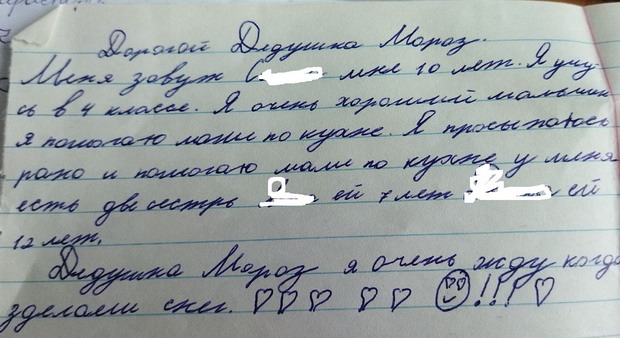 Дорогой Дедушка Мороз.
Меня зовут С мне 10 лет. Я учу-
сь в 4 классе. Я очень хороший мальчик
я помогаю маме по кухне. Я просыпаюсь
рано и помогаю маме по кухне у меня
есть две сестры ей 7 лет ей
12 лет.
Дедушка Мороз я очень жду когда
зделаеш снег. ♡♡♡ ♡♡ ☺!!!♡